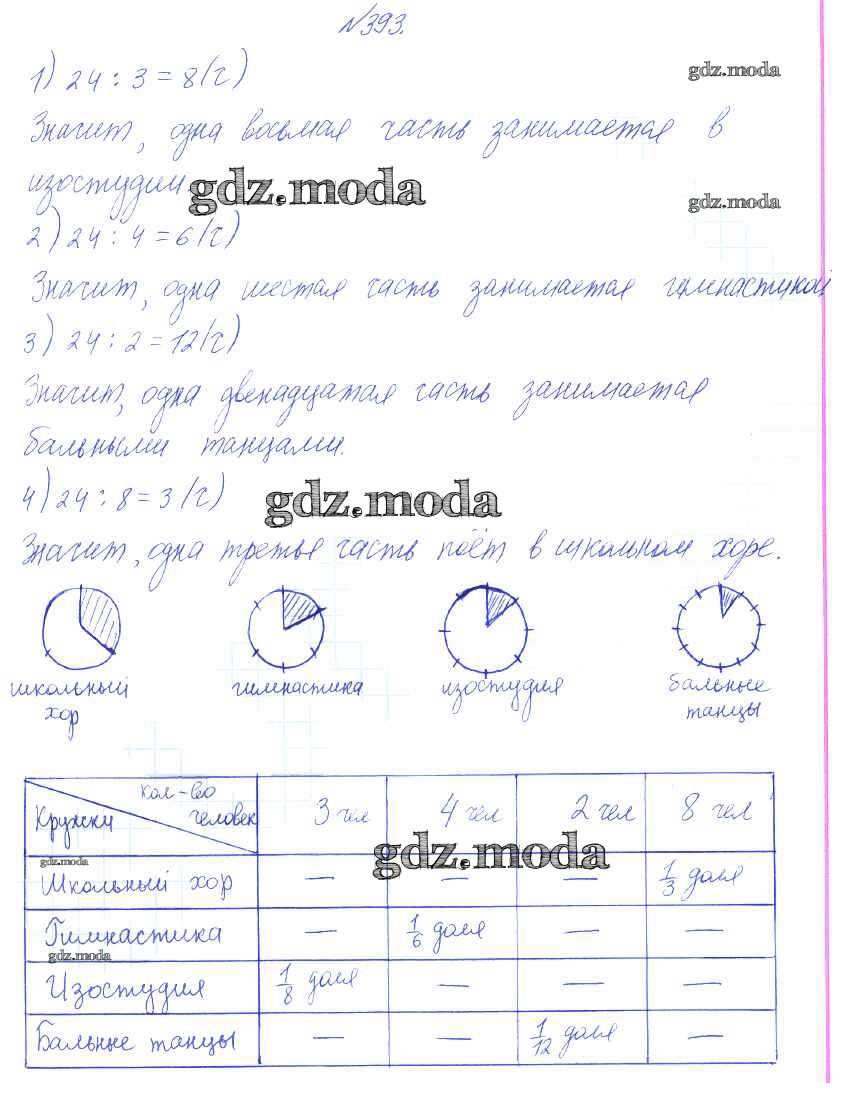 №393.
1) 24 : 3 = 8 (ч)
gdz.moda
Значит, одна восьмая часть занимается в
изостудии
gdz.moda
gdz.moda
2) 24 : 4 = 6 (ч)
Значит, одна шестая часть занимается гимнастикой
3) 24 : 2 = 12 (ч)
Значит, одна двенадцатая часть занимается
бальными танцами.
4) 24 : 8 = 3 (ч)
gdz.moda
Значит, одна третья часть поёт в школьном хоре.
школьный хор
гимнастика
изостудия
бальные танцы
Кружки кол-во человек 3 чел 4 чел 2 чел 8 чел
gdz.moda
gdz.moda
Школьный хор — — — 1/3 доля
Гимнастика — 1/6 доля — —
gdz.moda
Изостудия 1/8 доля — — —
Бальные танцы — — 1/12 доля —